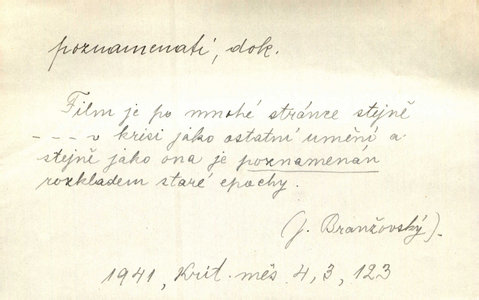 poznamenati, dok.
Film je po mnohé stránce stejně
---- v krisi jako ostatní umění a
stejně jako ona je poznamenán
rozkladem staré epochy.
(J. Branžovský).
1941, Krit. měs. 4, 3, 123